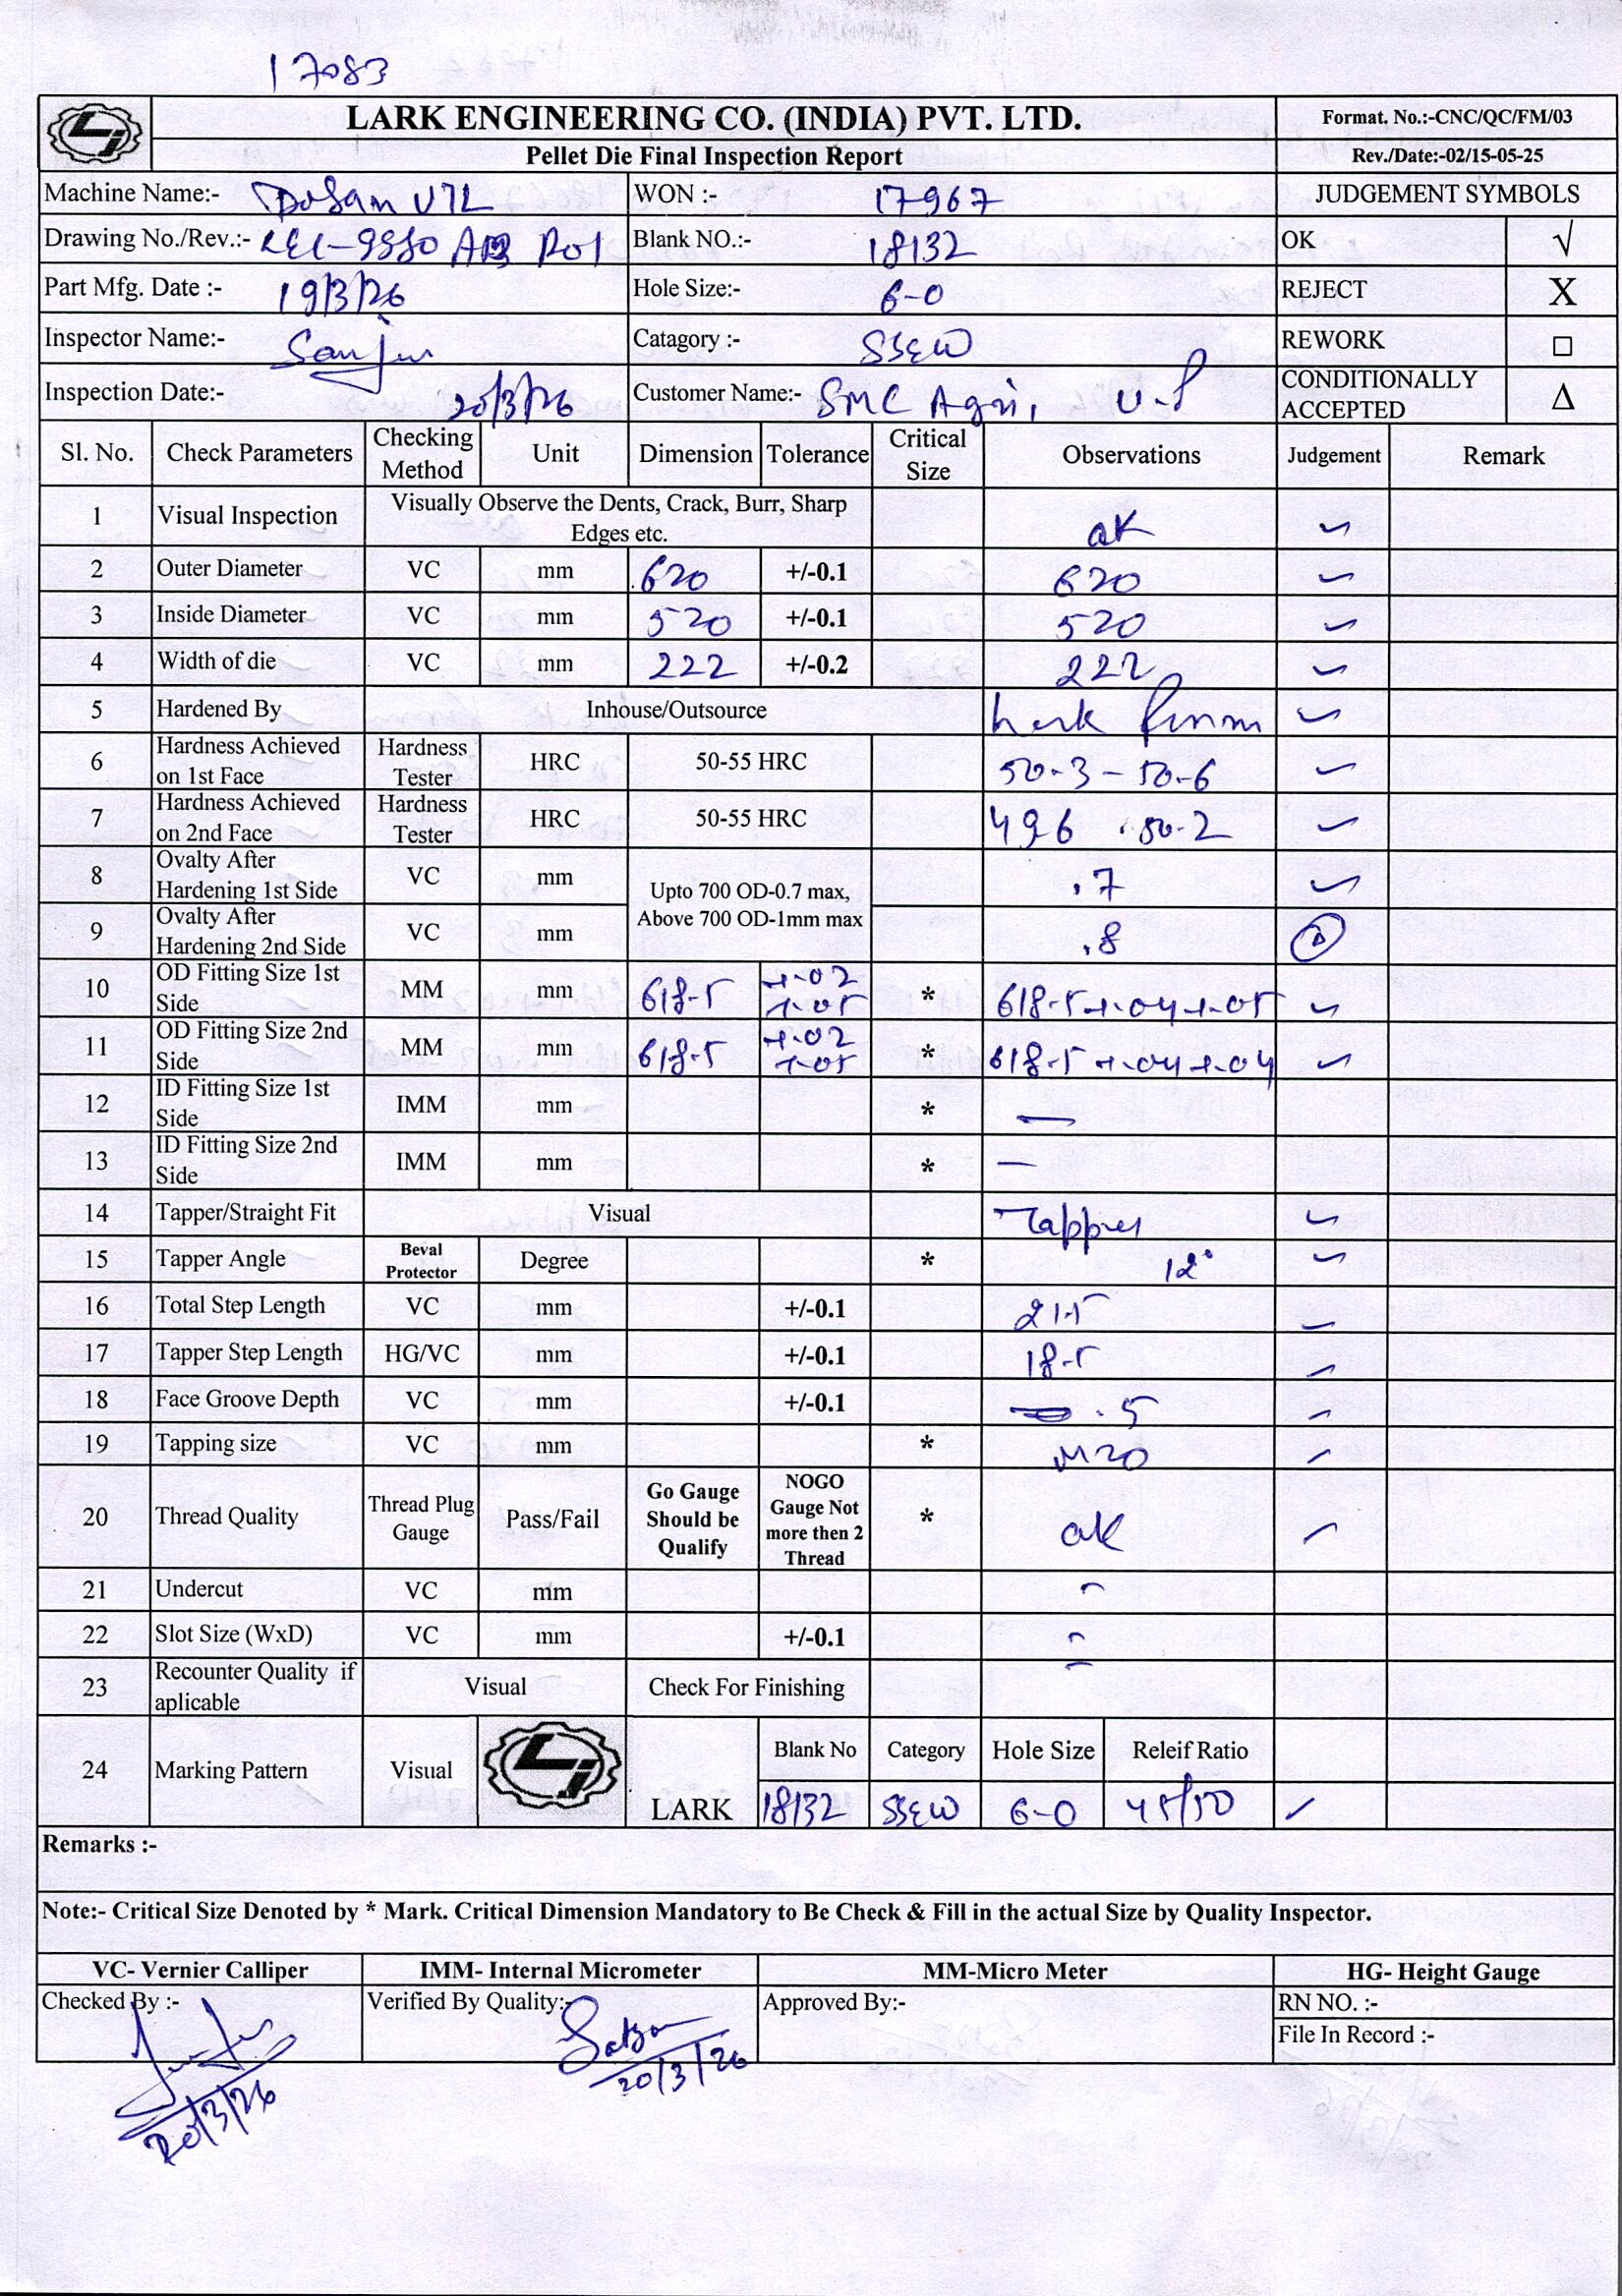 17083
LARK ENGINEERING CO. (INDIA) PVT. LTD. Format. No.:-CNC/QC/FM/03
Pellet Die Final Inspection Report Rev./Date:-02/15-05-25
Machine Name:- Dosan VTL WON :- 17967 JUDGEMENT SYMBOLS
Drawing No./Rev.:- R01 Blank NO.:- 18132 OK √
Part Mfg. Date :- 19/3/26 Hole Size:- 6-0 REJECT X
Inspector Name:- Sanju Catagory :- SSEW REWORK □
Inspection Date:- 20/3/26 Customer Name:- SMC Agri, U.P CONDITIONALLY ACCEPTED Δ
Sl. No. Check Parameters Checking Method Unit Dimension Tolerance Critical Size Observations Judgement Remark
1 Visual Inspection Visually Observe the Dents, Crack, Burr, Sharp Edges etc. ok ✓
2 Outer Diameter VC mm 620 +/-0.1 620 ✓
3 Inside Diameter VC mm 520 +/-0.1 520 ✓
4 Width of die VC mm 222 +/-0.2 222 ✓
5 Hardened By Inhouse/Outsource ✓
6 Hardness Achieved on 1st Face Hardness Tester HRC 50-55 HRC 50-3 - 50-6 ✓
7 Hardness Achieved on 2nd Face Hardness Tester HRC 50-55 HRC 496 50-2 ✓
8 Ovalty After Hardening 1st Side VC mm Upto 700 OD-0.7 max, Above 700 OD-1mm max .7 ✓
9 Ovalty After Hardening 2nd Side VC mm .8 Δ
10 OD Fitting Size 1st Side MM mm 618-5 +.02 +.05 * 618-5+.04+.05 ✓
11 OD Fitting Size 2nd Side MM mm 618-5 +.02 +.05 * 618-5 +.04+.04 ✓
12 ID Fitting Size 1st Side IMM mm * —
13 ID Fitting Size 2nd Side IMM mm * —
14 Tapper/Straight Fit Visual Tapper ✓
15 Tapper Angle Beval Protector Degree * 12° ✓
16 Total Step Length VC mm +/-0.1 21.5 ✓
17 Tapper Step Length HG/VC mm +/-0.1 18-5 ✓
18 Face Groove Depth VC mm +/-0.1 .5 ✓
19 Tapping size VC mm * M20 ✓
20 Thread Quality Thread Plug Gauge Pass/Fail Go Gauge Should be Qualify NOGO Gauge Not more then 2 Thread * ok ✓
21 Undercut VC mm -
22 Slot Size (WxD) VC mm +/-0.1 -
23 Recounter Quality if aplicable Visual Check For Finishing -
24 Marking Pattern Visual LARK Blank No Category Hole Size Releif Ratio
18132 SSEW 6-0 45/50 ✓
Remarks :-
Note:- Critical Size Denoted by * Mark. Critical Dimension Mandatory to Be Check & Fill in the actual Size by Quality Inspector.
VC- Vernier Calliper IMM- Internal Micrometer MM-Micro Meter HG- Height Gauge
Checked By :- Verified By Quality:- Approved By:- RN NO. :-
File In Record :-
20/3/26 20/3/26